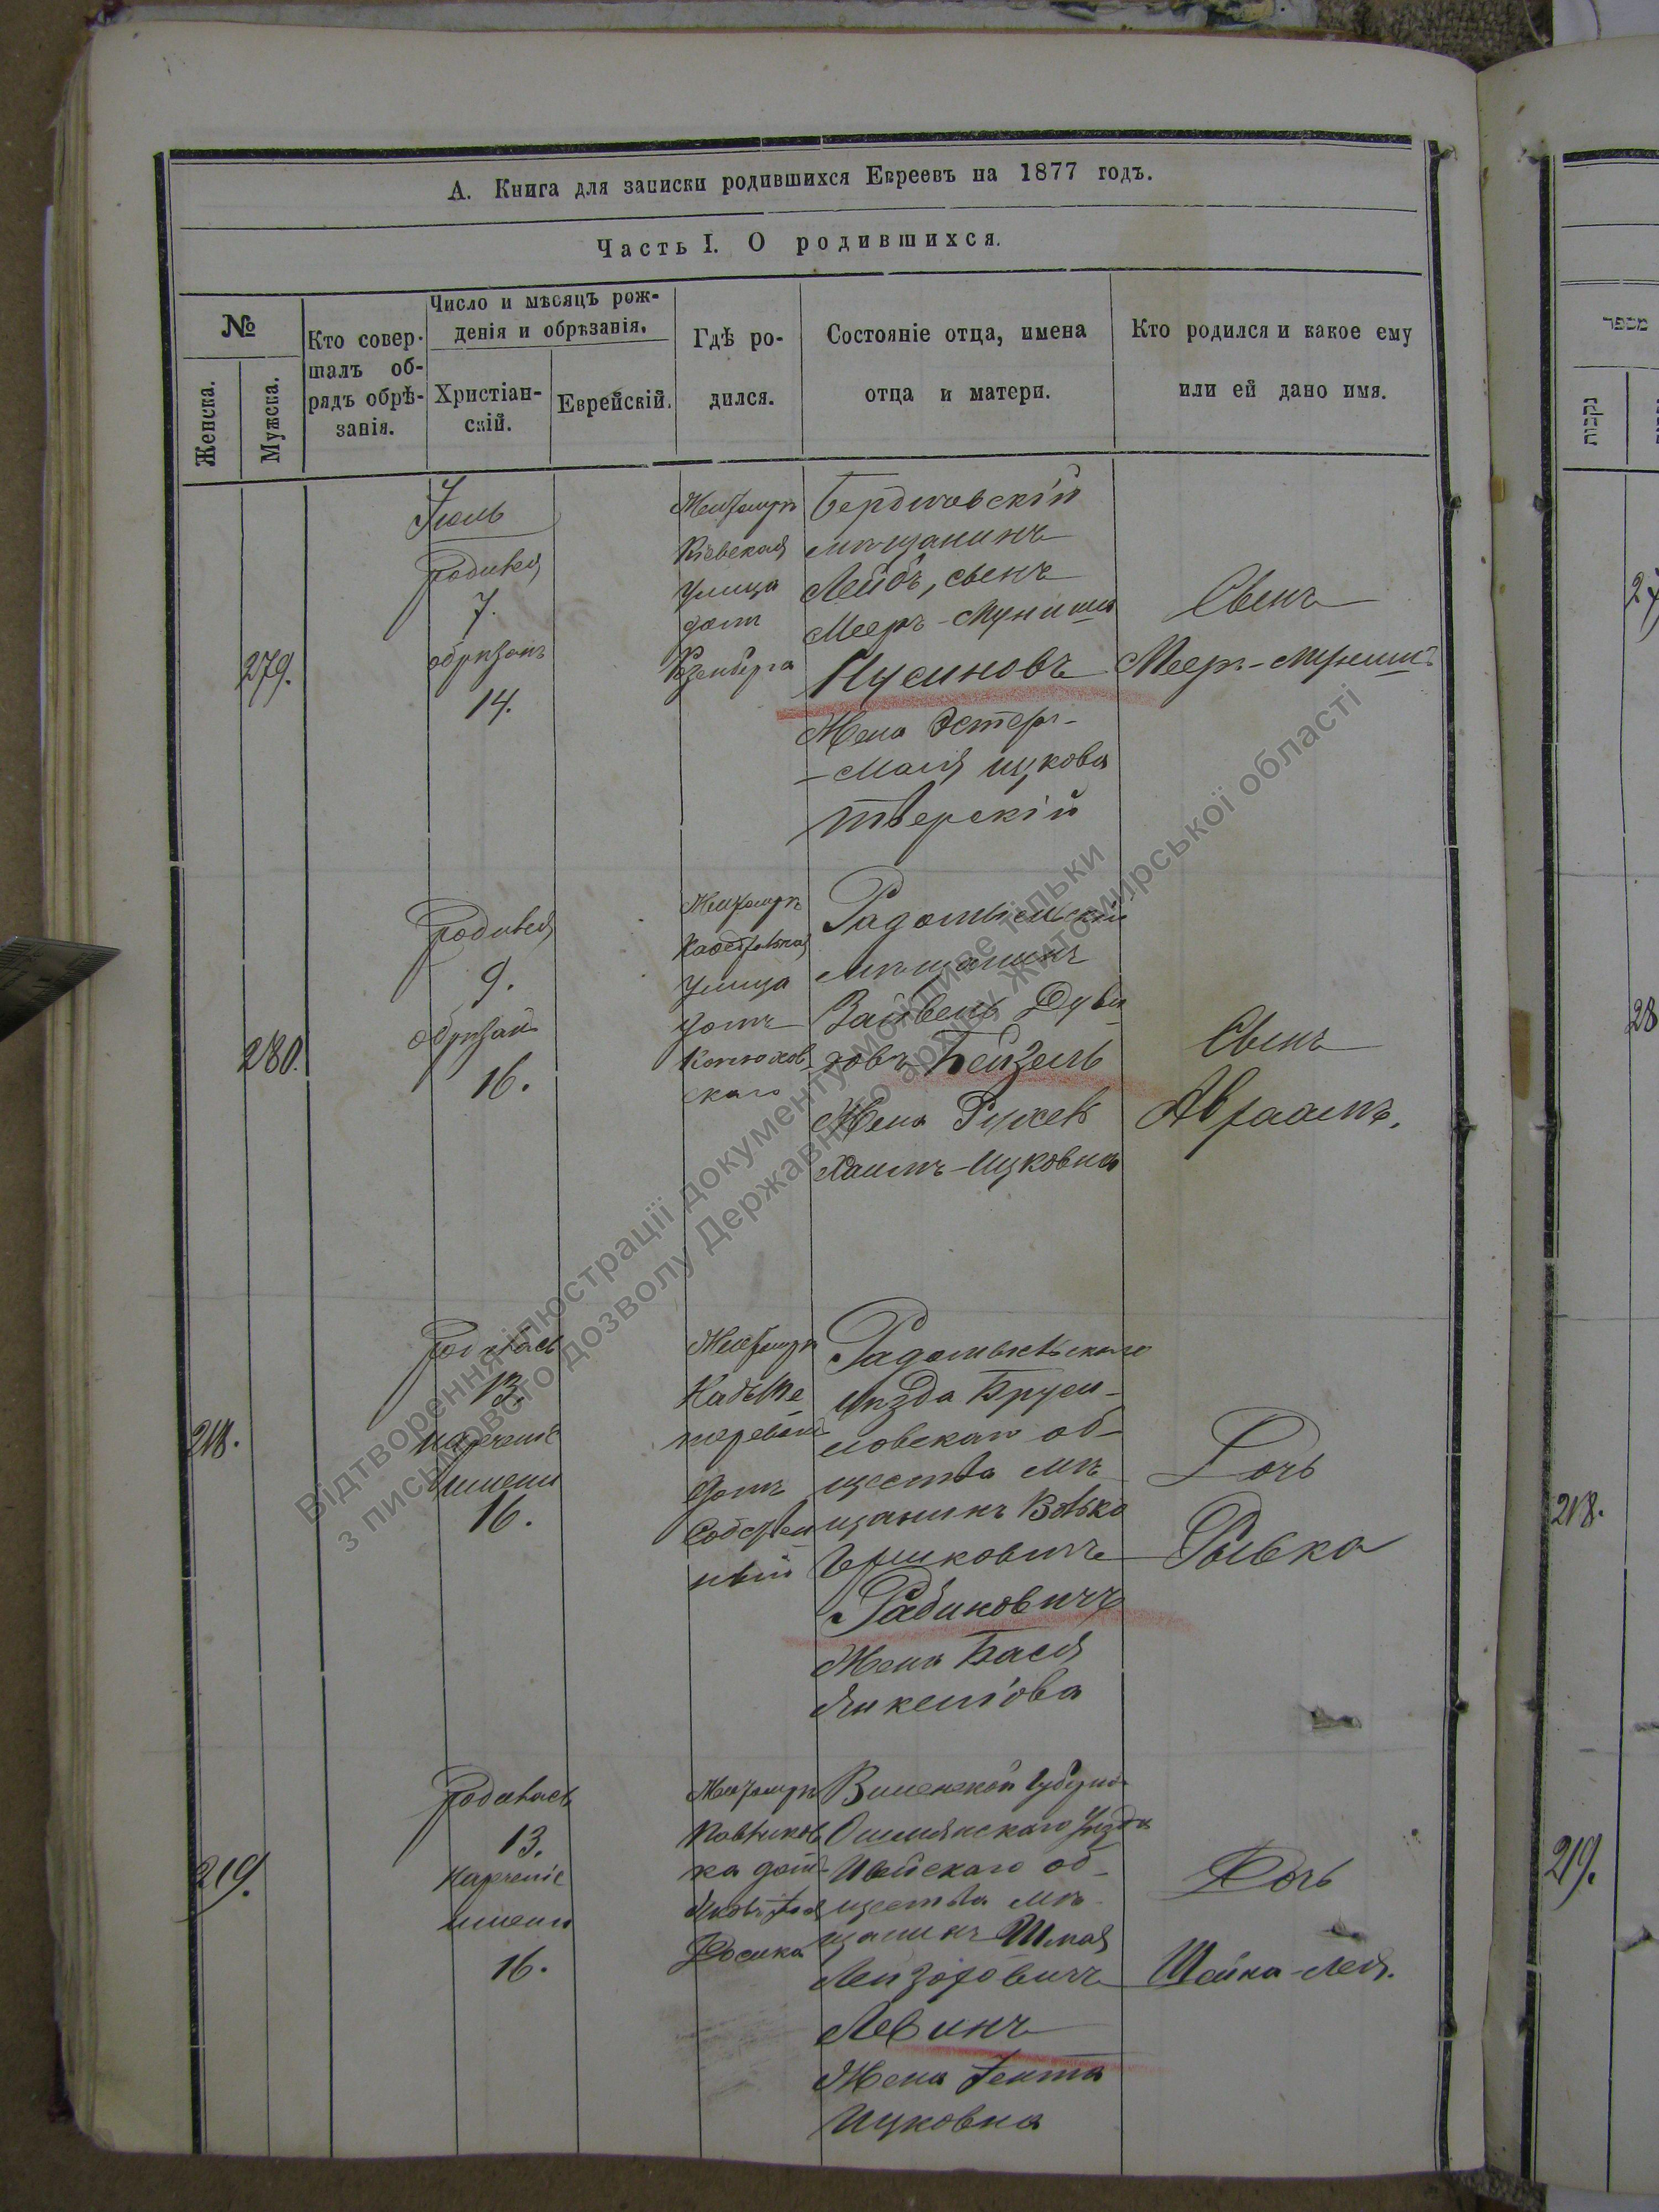 А. Книга для записки родившихся Евреевъ на 1877 годъ.
Часть I. О родившихся.
№
Женска.
Мужска.
Кто совер-
шалъ об-
рядъ обрѣ-
занія.
Число и мѣсяцъ рож-
денія и обрѣзанія.
Христіан-
скій.
Еврейскій.
Гдѣ ро-
дился.
Состояніе отца, имена
отца и матери.
Кто родился и какое ему
или ей дано имя.
279.
Іюль
родился
7.
обрѣзанъ
14.
Житомиръ
Кіевская
улица
домъ
Бердичовскій
мѣщанинъ
Лейбъ, сынъ
Мееръ-Муниша
Нусиновъ
Жена Эстеръ-
-Маля Ицкова
тверскій
Сынъ
Мееръ-Мунишъ
280.
родился
9.
обрѣзанъ
16.
Житомиръ
улица
домъ
скаго
Радомысльскій
мѣщанинъ
Зайвель Дуви
довъ Бейзель
Жена
Хаимъ-Ицковна
Сынъ
Авраамъ.
218.
родилась
13.
нареченіе
имени
16.
Житомиръ
домъ
Собствен
ный
Радомысльскаго
уѣзда Бруси-
ловскаго об-
щества мѣ
щанинъ Волько
Гершковичъ
Рабиновичъ
Жена Бася
Янкеліова
Дочь
Рывка
219.
родилась
13.
нареченіе
имени
16.
Житомиръ
Павликов
ка домъ
Виленской губерніи
Ошмянскаго уѣзда
Ивейскаго об-
щества мѣ-
щанинъ Шмая
Лейзоровичъ
Левинъ
Жена Гента
Ицковна
Дочь
Шейна-Лея.
מספר
נקבות
27
28
218.
219.
Відтворення ілюстрації документу можливе тільки
з письмового дозволу Державного архіву Житомирської області